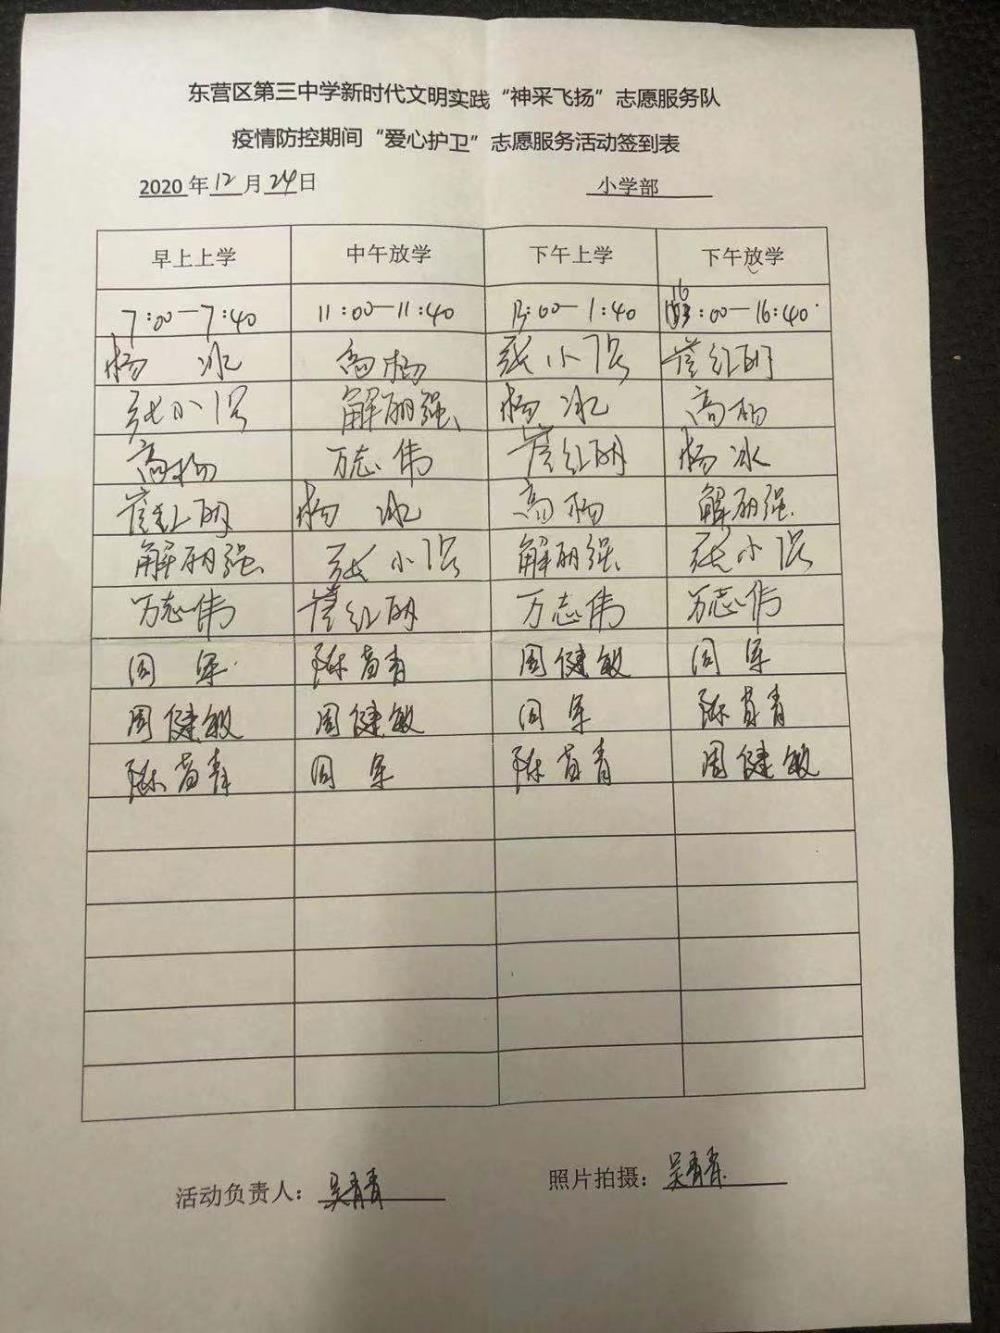 东营区第三中学新时代文明实践“神采飞扬”志愿服务队
疫情防控期间“爱心护卫”志愿服务活动签到表
2020年12月24日 小学部
早上上学 中午放学 下午上学 下午放学
7:00—7:40 11:00—11:40 :00—1:40 16:00—16:40
杨冰 高杨 张小 崔红丽
张小 解丽强 杨冰 高杨
高杨 万志伟 崔红丽 杨冰
崔红丽 杨冰 高杨 解丽强
解丽强 张小 解丽强 张小
万志伟 崔红丽 万志伟 万志伟
周军 陈青 周健敏 周军
周健敏 周健敏 周军 陈青
陈青 周军 陈青 周健敏
活动负责人：吴青青 照片拍摄：吴青青